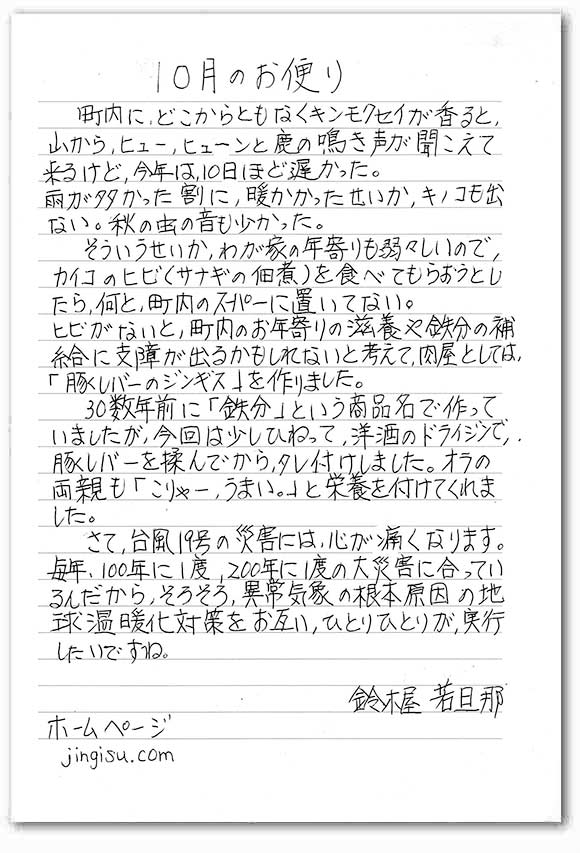 10月のお便り
町内に、どこからともなくキンモクセイが香ると、
山から、ヒュー、ヒューンと鹿の鳴き声が聞こえて
来るけど、今年は、10日ほど遅かった。
雨が多かった割に、暖かかったせいか、キノコも出
ない。秋の虫の音も少かった。
そういうせいか、わが家の年寄りも弱々しいので、
カイコのヒビ(サナギの佃煮)を食べてもらおうとし
たら、何と、町内のスーパーに置いてない。
ヒビがないと、町内のお年寄りの滋養や鉄分の補
給に支障が出るかもしれないと考えて、肉屋としては、
「豚レバーのジンギス」を作りました。
30数年前に「鉄分」という商品名で作って
いましたが、今回は少しひねって、洋酒のドライジンで、
豚レバーを揉んでから、タレ付けしました。オラの
両親も「こりゃー、うまい。」と栄養を付けてくれま
した。
さて、台風19号の災害には、心が痛くなります。
毎年、100年に1度、200年に1度の大災害に合ってい
るんだから、そろそろ、異常気象の根本原因の地
球温暖化対策をお互い、ひとりひとりが、実行
したいですね。
鈴木屋 若旦那
ホームページ
jingisu.com